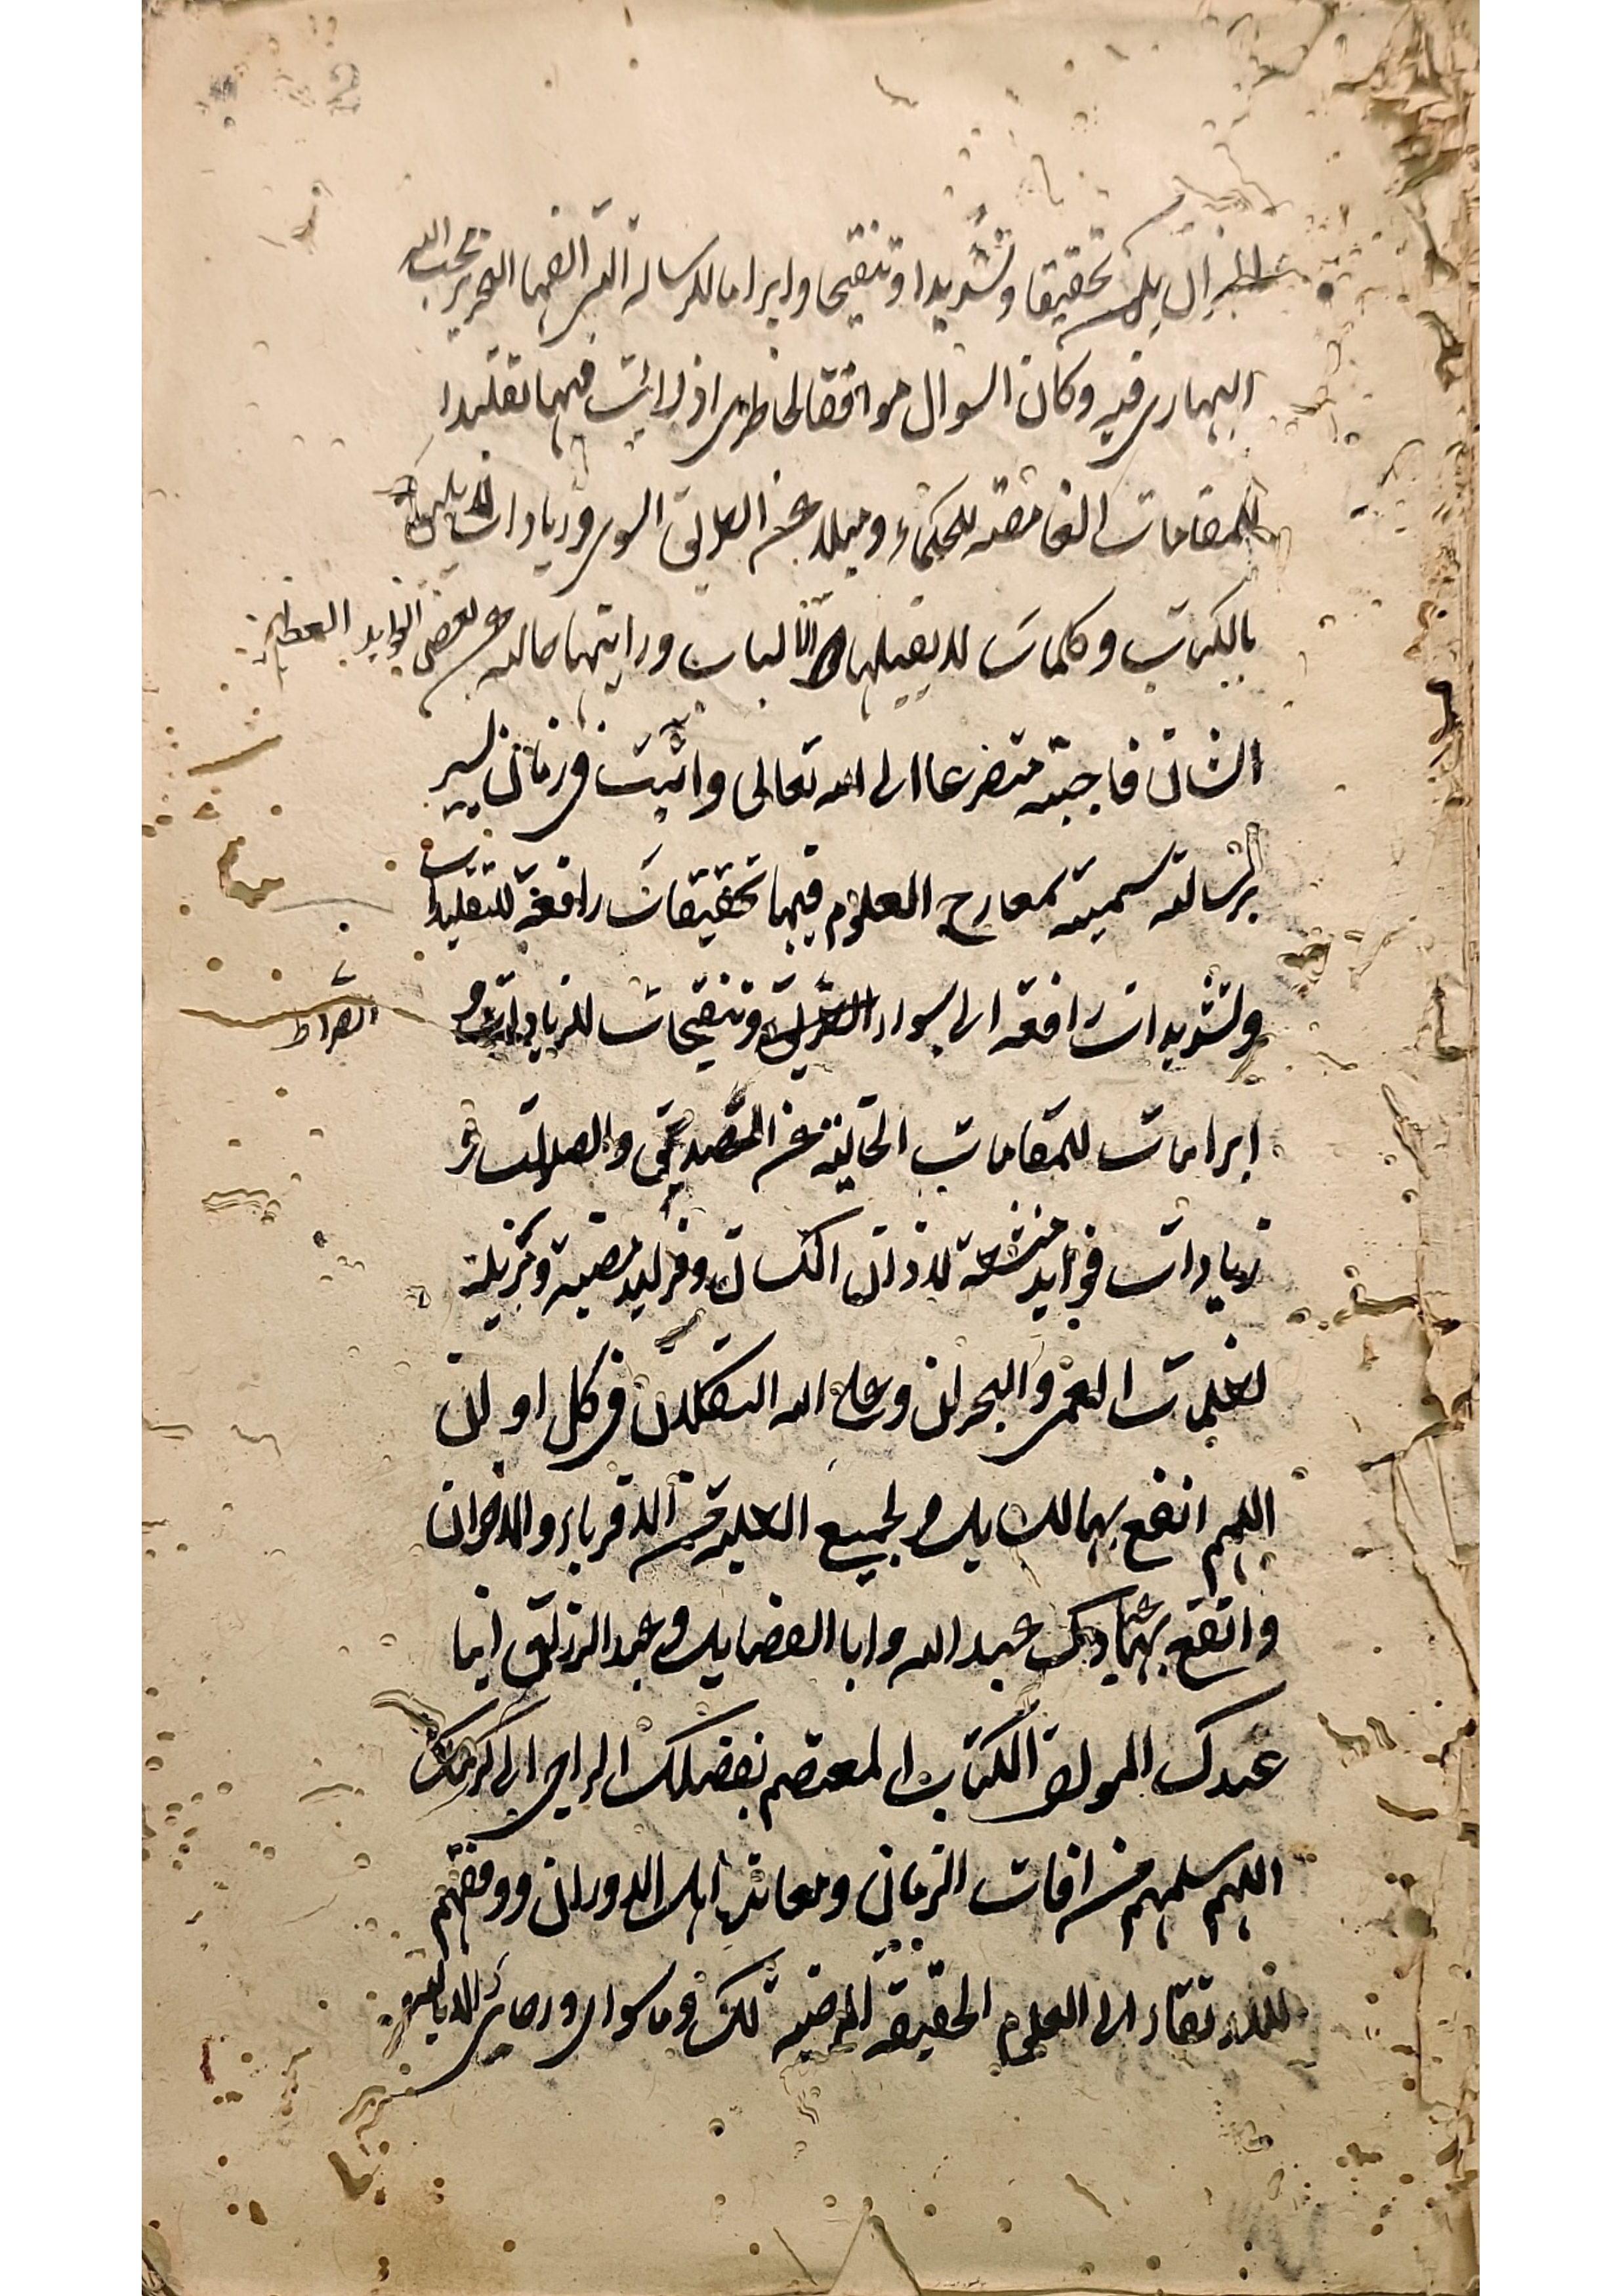 2
ان يكن تحقيقا وتشديدا وتنقيحا وابراما للرسالة التى الفها النحرير محب الله
البهارى فيه وكان السوال موافقا لخاطرى اذ رايت فيها تقليدا
للمقامات الغامضة للحكماء وميلا عن الطريق السوى وزيادات لا يليق
بالكتاب وكلمات لا تقبلها الالباب ورايتها خالية عن بعض الفوايد العظيمة
الشان فاجبته متضرعا الى الله تعالى واتيت فى زمان يسير
برسالة سميته بمعارج العلوم فيها تحقيقات رافعة للتقليدات
وتشديدات رافعة الى سواء وتنقيحات للزيادات و
الصراط
ابرامات للمقامات الخالية عن التصديق والصلات و
زيادات فوايد منشعة لاذان الكسان وفرايد مضيئة ومزيلة
لظلمات العمى والبحران وعلى الله التكلان فى كل اوان
اللهم انفع بها لك يك ولجميع الطلبة من الاقرباء والاخوان
وانفع بها عبادك عبد الله وابا الفضايل وعبد الرزاق ابنا
عبدك المولف الكتاب المعتصم بفضلك الراجى الى كرمك
اللهم سلمهم من افات الزمان ومعائب اهل الدوران ووفقهم
للارتقاء الى العلوم الحقيقة المرضية لك وما سواى ورضائى